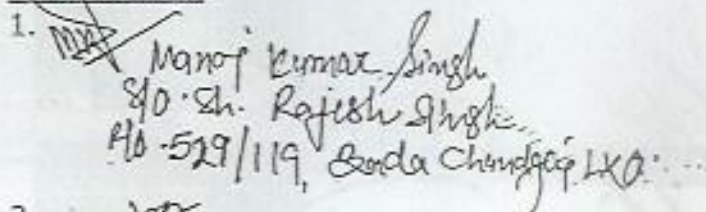 1.
Manoj Kumar Singh
S/O. Sh. Rajesh Singh
R/O - 529/119, Chandganj LKO.